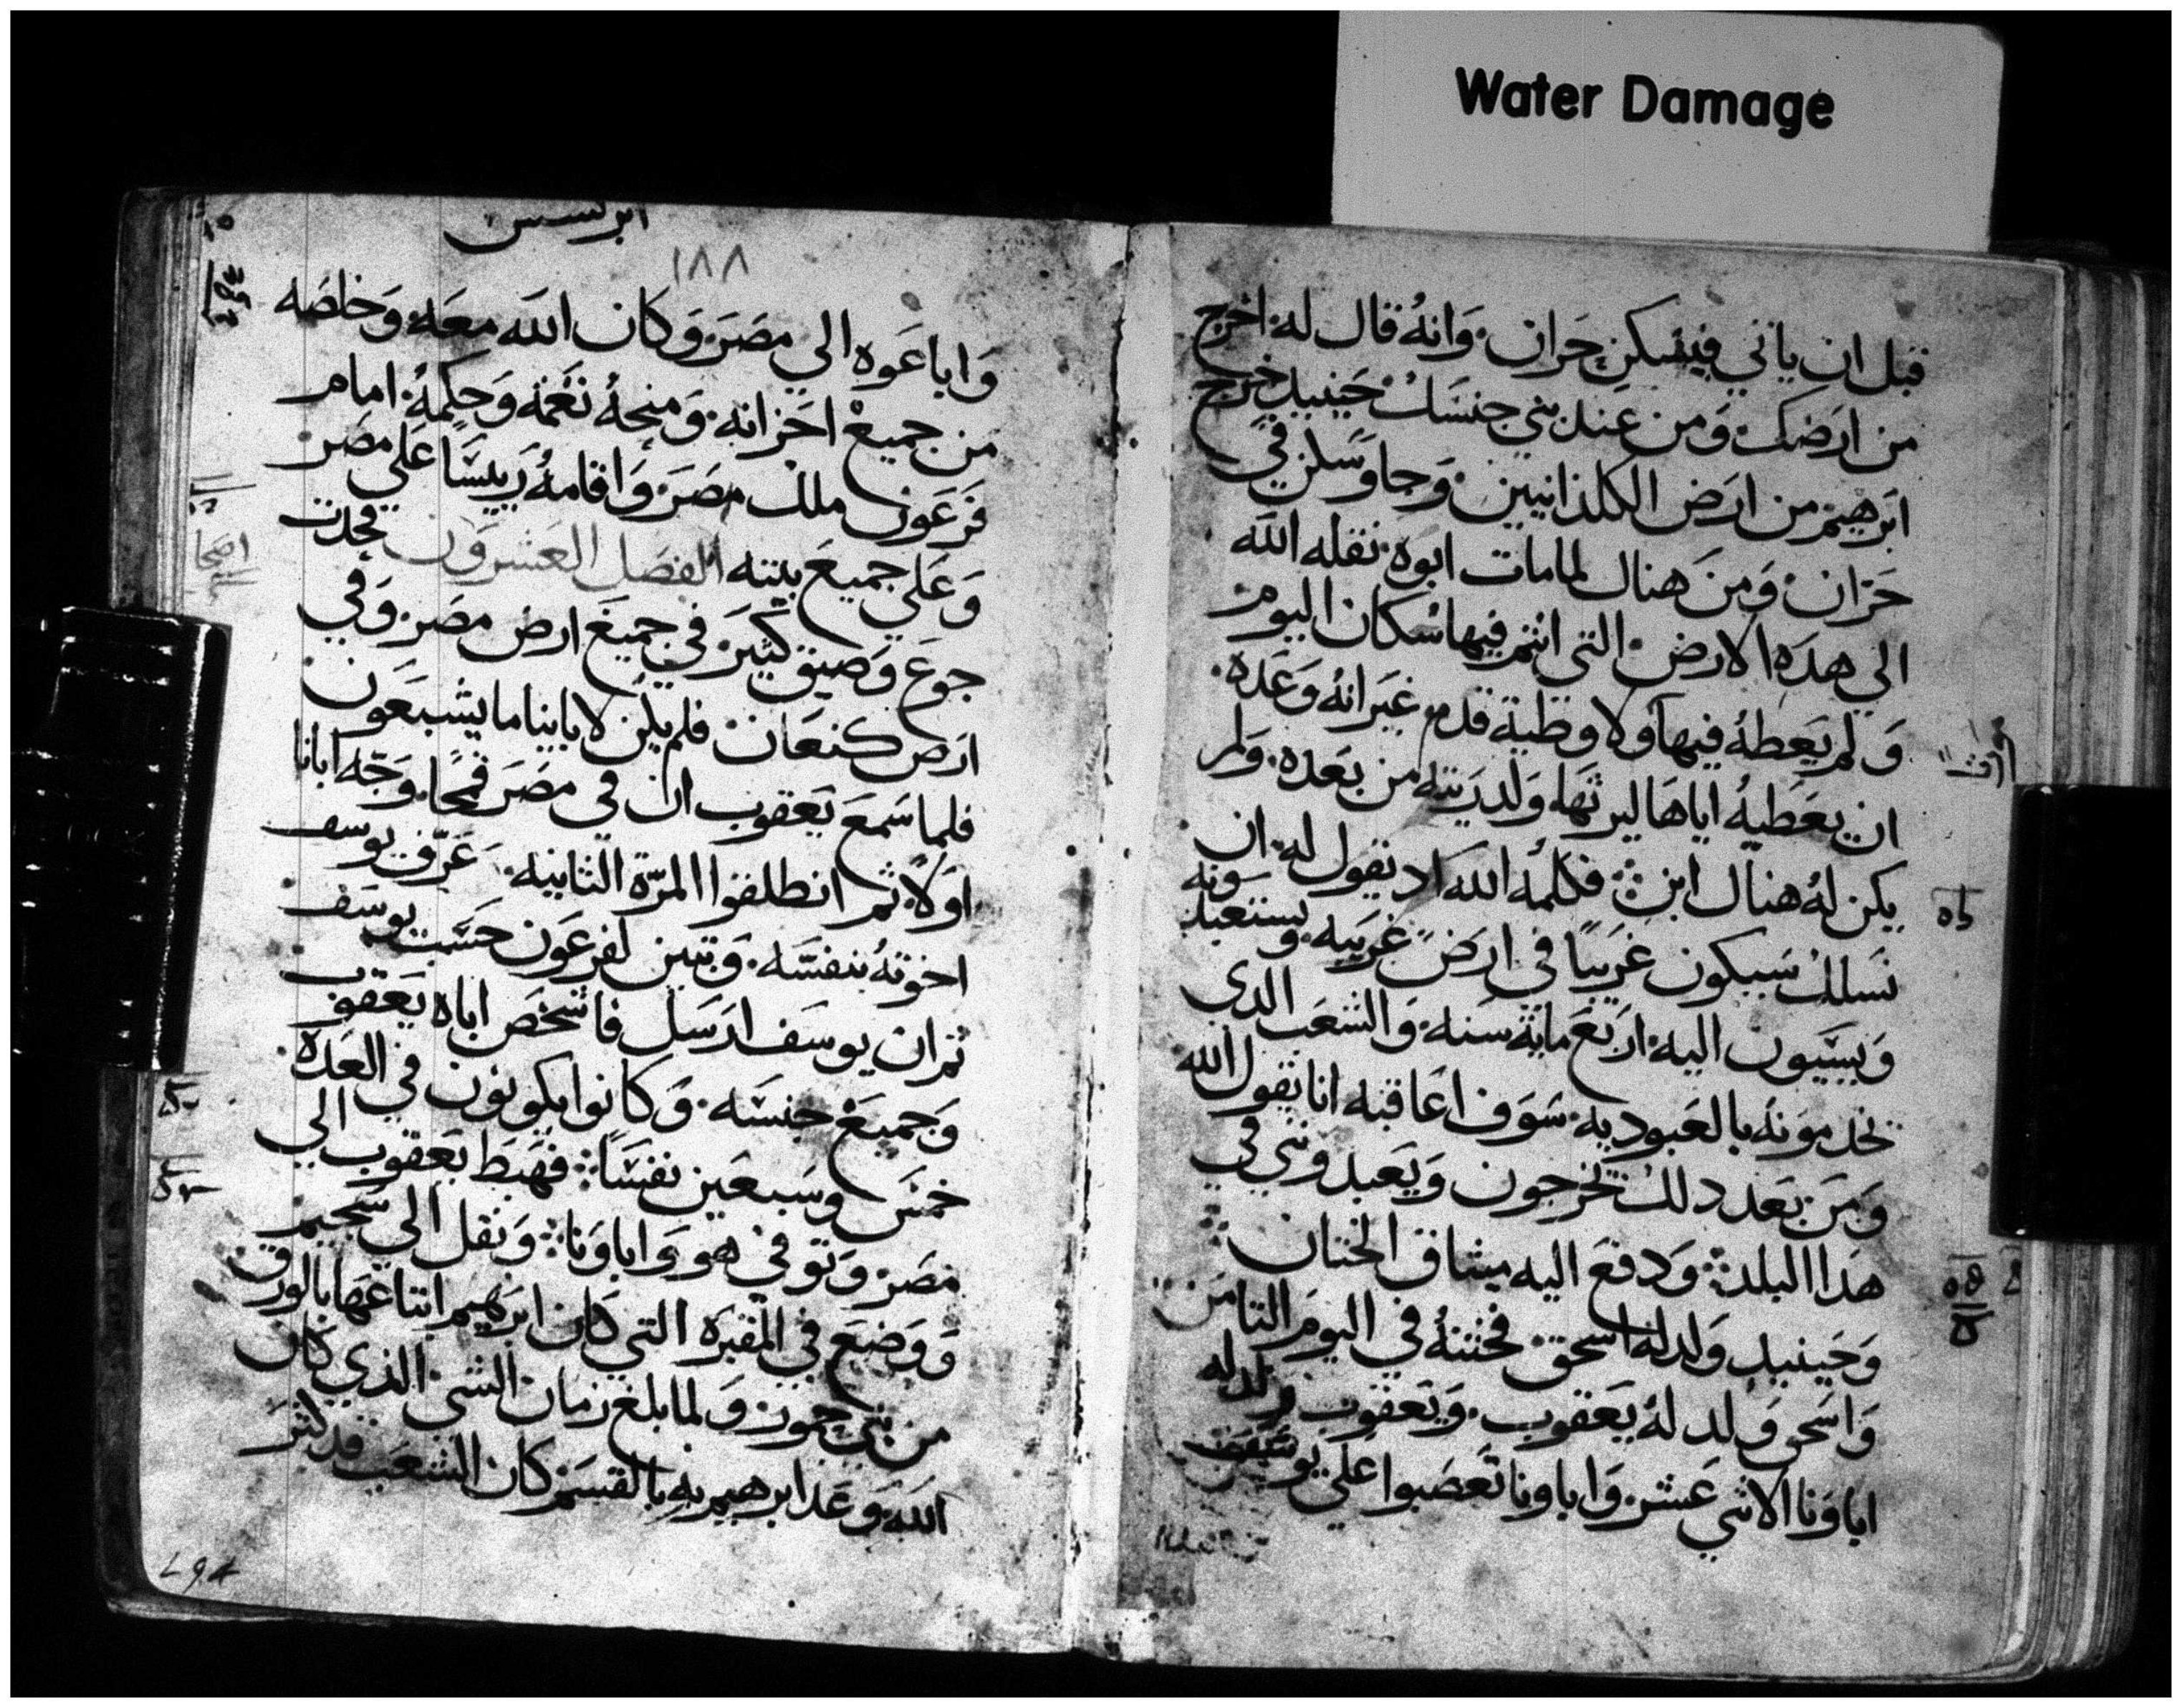 Water Damage
قبل ان ياتي فيسكن حران وانه قال له اخرج
من ارضك ومن عند بني جنسك حينيد خرج
ابرهيم من ارض الكلدانيين وجا وسكن في
حران ومن هناك لما مات ابوه نقله الله
الي هده الارض التي انتم فيها سكان اليوم
ولم يعطه فيها ولا وطية قدم غير انه وعده
ان يعطيه اياها ليرثها ولدريته من بعده ولم
يكن له هناك ابن فكلمه الله اد يقول له ان
نسلك سيكون غريبا في ارض غريبه ويستعبدونه
ويسيون اليه اربع مايه سنه والشعب الدي
يخدمونه بالعبوديه سوف اعاقبه انا يقول الله
ومن بعد دلك يخرجون ويعبدونني في
هدا البلد ودفع اليه ميثاق الختان
وحينيد ولد له اسحق فختنه في اليوم الثامن
واسحق ولد له يعقوب ويعقوب ولد له
اباونا الاثني عشر واباونا تعصبوا علي يوسف
ابركسيس
١٨٨
واباعوه الي مصر وكان الله معه وخلصه
من جميع احزانه ومنحه نعمه وحكمه امام
فرعون ملك مصر واقامه رييسا علي مصر
وعلي جميع بيته الفصل العشرون فحدت
جوع وضيق كثير في جميع ارض مصر وفي
ارض كنعان فلم يكن لاباينا ما يشبعون
فلما سمع يعقوب ان في مصر قمحا وجه ابانا
اولا ثم انطلقوا المرة الثانيه عرف يوسف
اخوته بنفسه وتبين لفرعون حسب يوسف
ثم ان يوسف ارسل فاشخص اباه يعقوب
وجميع جنسه وكانوا يكونون في العده
خمس وسبعين نفسا فهبط يعقوب الي
مصر وتوفي هو واباونا ونقل الي سجيم
ووضع في المقبره التي كان ابرهيم ابتاعها بالورق
من بني حمور ولما بلغ زمان الشي الذي كان
الله وعد ابرهيم به بالقسم كان الشعب قد كثر